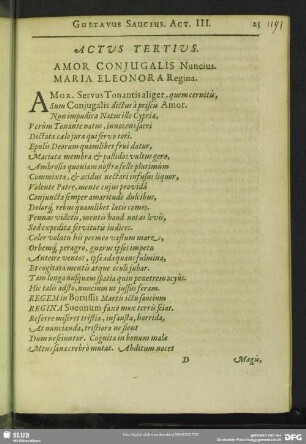 GUSTAVUS SAUCIUS. ACT. III. 25
1191
ACTUS TERTIUS.
AMOR CONJUGALIS Nuncius.
MARIA ELEONORA Regina.
AMOR. Servus Tonantis aliger, quem cernitis,
Sum Conjugalis dictus à priscis Amor.
Non impudica Natus ille Cypriæ,
Verùm Tonante natus, innocens sacri
Dictata calo jura qui servo tori.
Epulis Deorum quamlibet fruı datur,
Macista membra & pallidos vultus gero,
Ambrosia quoniam nostra felle plurimùm
Commixta, & acidus nectari infusus liquor,
Volente Patre, mente cujus providâ
Conjuncta semper amaritudo dulcibus,
Dolorq́; rebus quamlibet lætis comes.
Pennas videtis, mentis haud notas levis,
Sed expedita servitutis indices.
Celer volatu his permeo vastum mare,
Orbemq́; peragro, gnarus ipse impetu
Anteire ventos, ipsa adæquans fulmina,
Et cogitata mentis atque oculi jubar.
Tam longa nusquam spatia quin penetrem ocyùs.
Hic talis adsto, nuncium ut jussus feram.
REGEM in Borussis Martis ictu saucium
REGINA Sueonum faxo mox terris sciat.
Referre miseret tristia, infausta, horrida,
At nuncianda, tristiora ne sient
Dum nesciuntur. Cognita in bonum mala
Mens sana crebrò mutat. Abditum nocet
D Magis,
SLUB